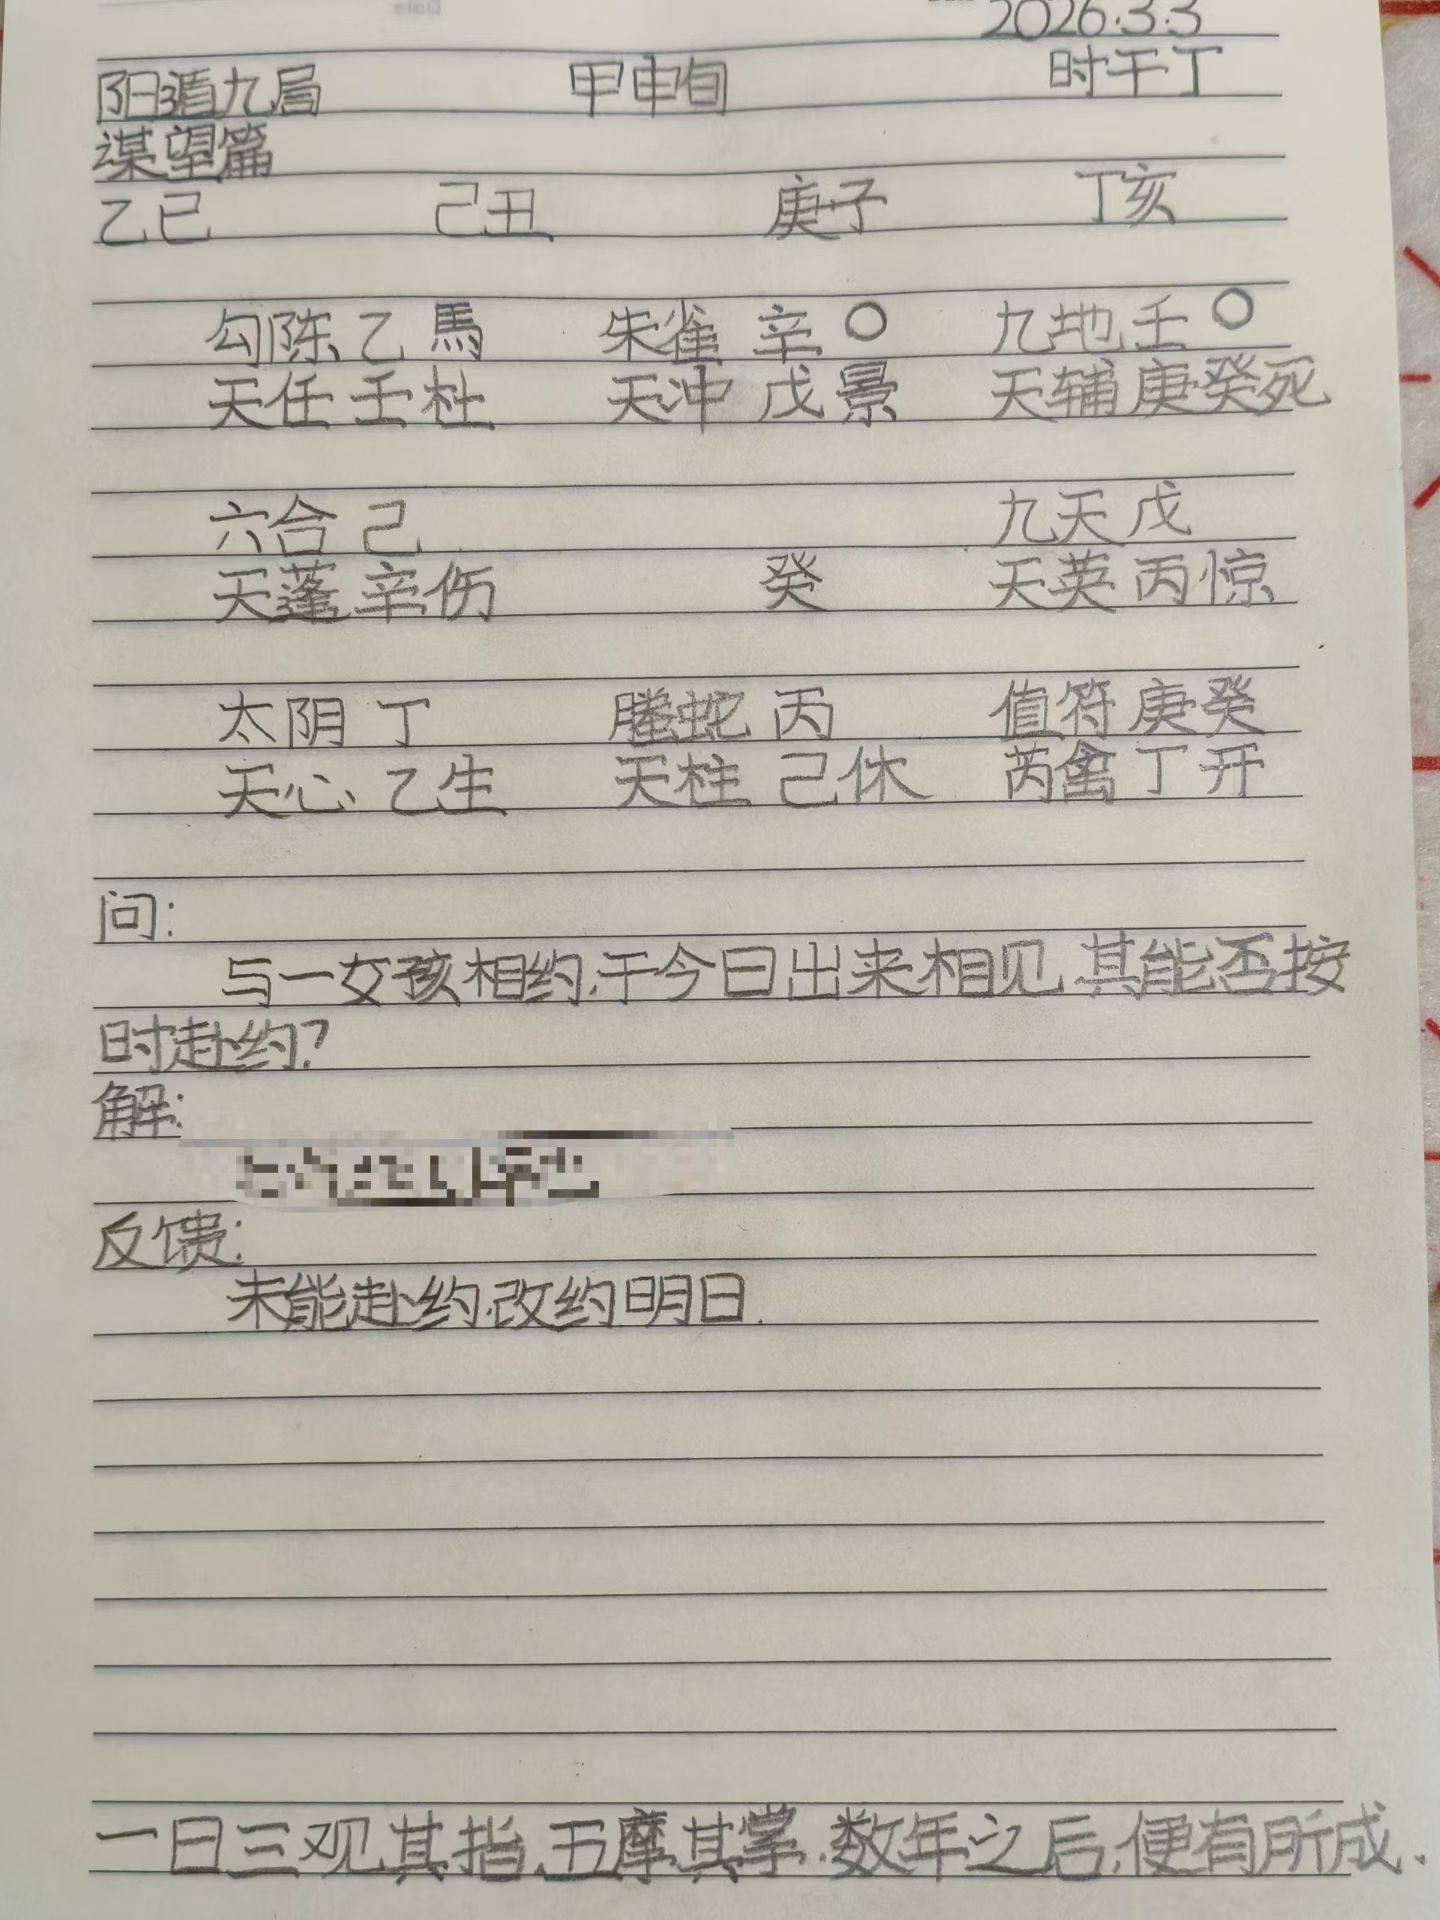 2026.3.3
阳遁九局 甲申旬 时干丁
谋望篇
乙巳 己丑 庚子 丁亥
勾陈 乙 馬 朱雀 辛 〇 九地 壬 〇
天任 壬 杜 天冲 戊 景 天辅 庚癸死
六合 己 九天 戊
天蓬 辛伤 癸 天英 丙 惊
太阴 丁 螣蛇 丙 值符 庚癸
天心 乙生 天柱 己休 芮禽 丁 开
问:
与一女孩相约,于今日出来相见,其能否按
时赴约?
解:
反馈:
未能赴约,改约明日.
一日三观其指,五摩其掌.数年之后,便有所成.